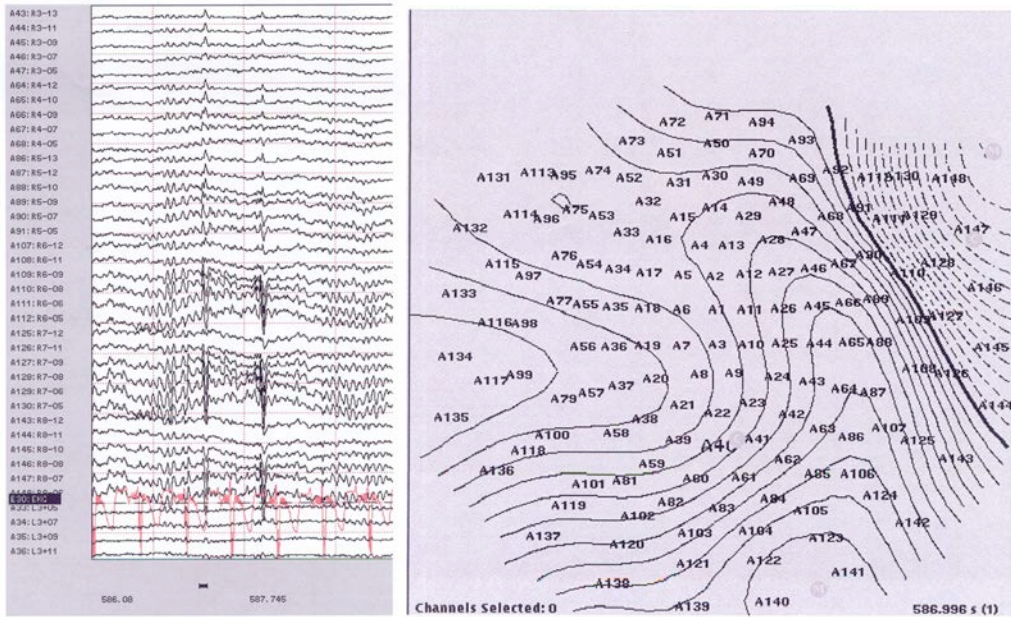 A43: R3-13
A44: R3-11
A45: R3-09
A46: R3-07
A47: R3-05
A64: R4-12
A65: R4-10
A66: R4-09
A67: R4-07
A68: R4-05
A86: R5-13
A87: R5-12
A88: R5-10
A89: R5-09
A90: R5-07
A91: R5-05
A107: R6-12
A108: R6-11
A109: R6-09
A110: R6-08
A111: R6-06
A112: R6-05
A125: R7-12
A126: R7-11
A127: R7-09
A128: R7-08
A129: R7-06
A130: R7-05
A143: R8-12
A144: R8-11
A145: R8-10
A146: R8-08
A147: R8-07
A34: L3+07
A35: L3+09
A36: L3+11
586.08 587.745
A71
A72 A94
A73 A50 A93
A51 A70
A131 A113 A95 A74 A52 A31 A30 A49 A69 A92 A130 A148
A114 A96 A75 A53 A32 A15 A14 A29 A48 A68 A91 A129
A132 A33 A16 A4 A13 A28 A47 A147
A115 A97 A76 A54 A34 A17 A5 A2 A12 A27 A46 A67 A90 A110 A128
A133 A77 A55 A35 A18 A6 A1 A11 A26 A45 A66 A89 A146
A116 A98 A127
A134 A56 A36 A19 A7 A3 A10 A25 A44 A65 A88 A145
A117 A99 A79 A57 A37 A20 A8 A9 A24 A43 A64 A87 A108 A126
A135 A38 A21 A22 A23 A42 A144
A100 A58 A39 A40 A41 A63 A86 A107 A125
A136 A118 A59 A62 A143
A101 A81 A80 A61 A85 A106
A119 A102 A82 A83 A84 A105 A124
A137 A120 A103 A104 A123 A142
A138 A121 A122 A141
A139 A140
Channels Selected: 0 586.996 s (1)